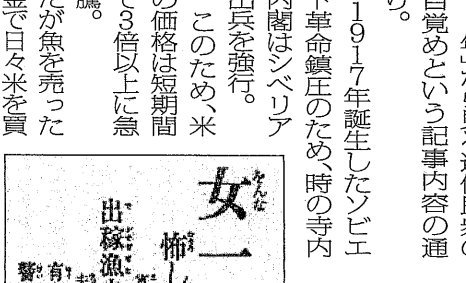 目覚めという記事内容の通
り。
1917年誕生したソビエ
ト革命鎮圧のため、時の寺内
内閣はシベリア
出兵を強行。
このため、米
の価格は短期間
で3倍以上に急
騰。
たが魚を売った
金で日々米を買
女一
をんな
怖し
出稼漁